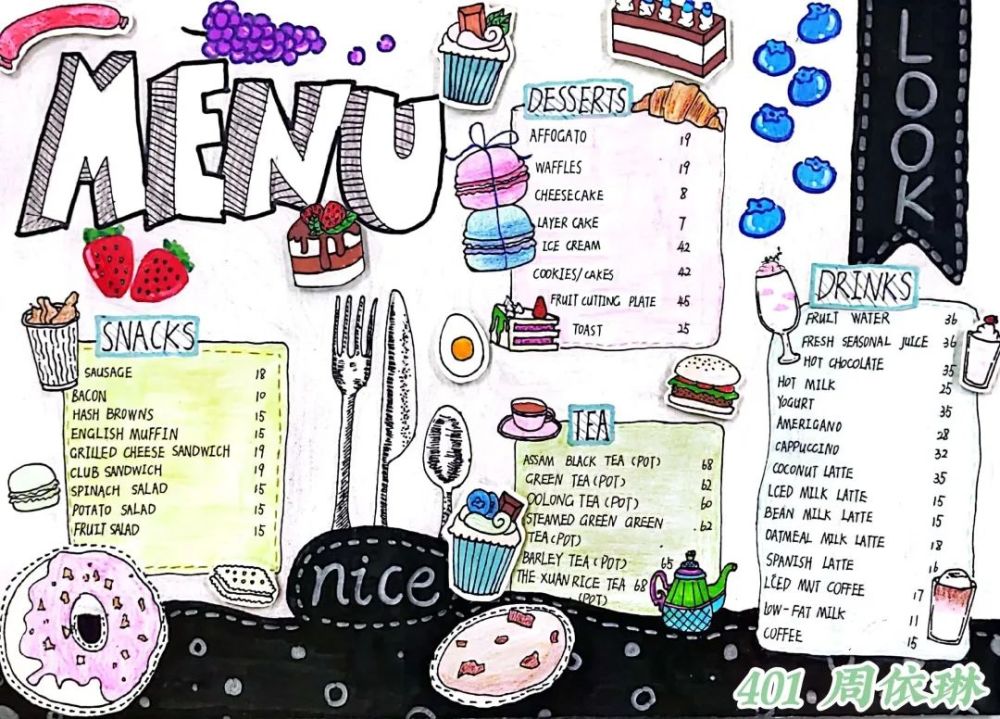 MENU
LOOK
DESSERTS
AFFOGATO 19
WAFFLES 19
CHEESECAKE 8
LAYER CAKE 7
ICE CREAM 42
COOKIES/CAKES 42
FRUIT CUTTING PLATE 45
TOAST 25
SNACKS
SAUSAGE 18
BACON 10
HASH BROWNS 15
ENGLISH MUFFIN 15
GRILLED CHEESE SANDWICH 19
CLUB SANDWICH 19
SPINACH SALAD 15
POTATO SALAD 15
FRUIT SALAD 15
TEA
ASSAM BLACK TEA (POT) 68
GREEN TEA (POT) 62
OOLONG TEA (POT) 60
STEAMED GREEN GREEN 62
TEA (POT)
BARLEY TEA (POT) 65
THE XUAN RICE TEA 68
(POT)
DRINKS
FRUIT WATER 36
FRESH SEASONAL JUICE 36
HOT CHOCOLATE 35
HOT MILK 25
YOGURT 35
AMERIGANO 28
CAPPUCCINO 32
COCONUT LATTE 35
LCED MILK LATTE 15
BEAN MILK LATTE 15
OATMEAL MILK LATTE 18
SPANISH LATTE 16
LCED MUT COFFEE 17
LOW-FAT MILK 11
COFFEE 15
nice
401 周依琳